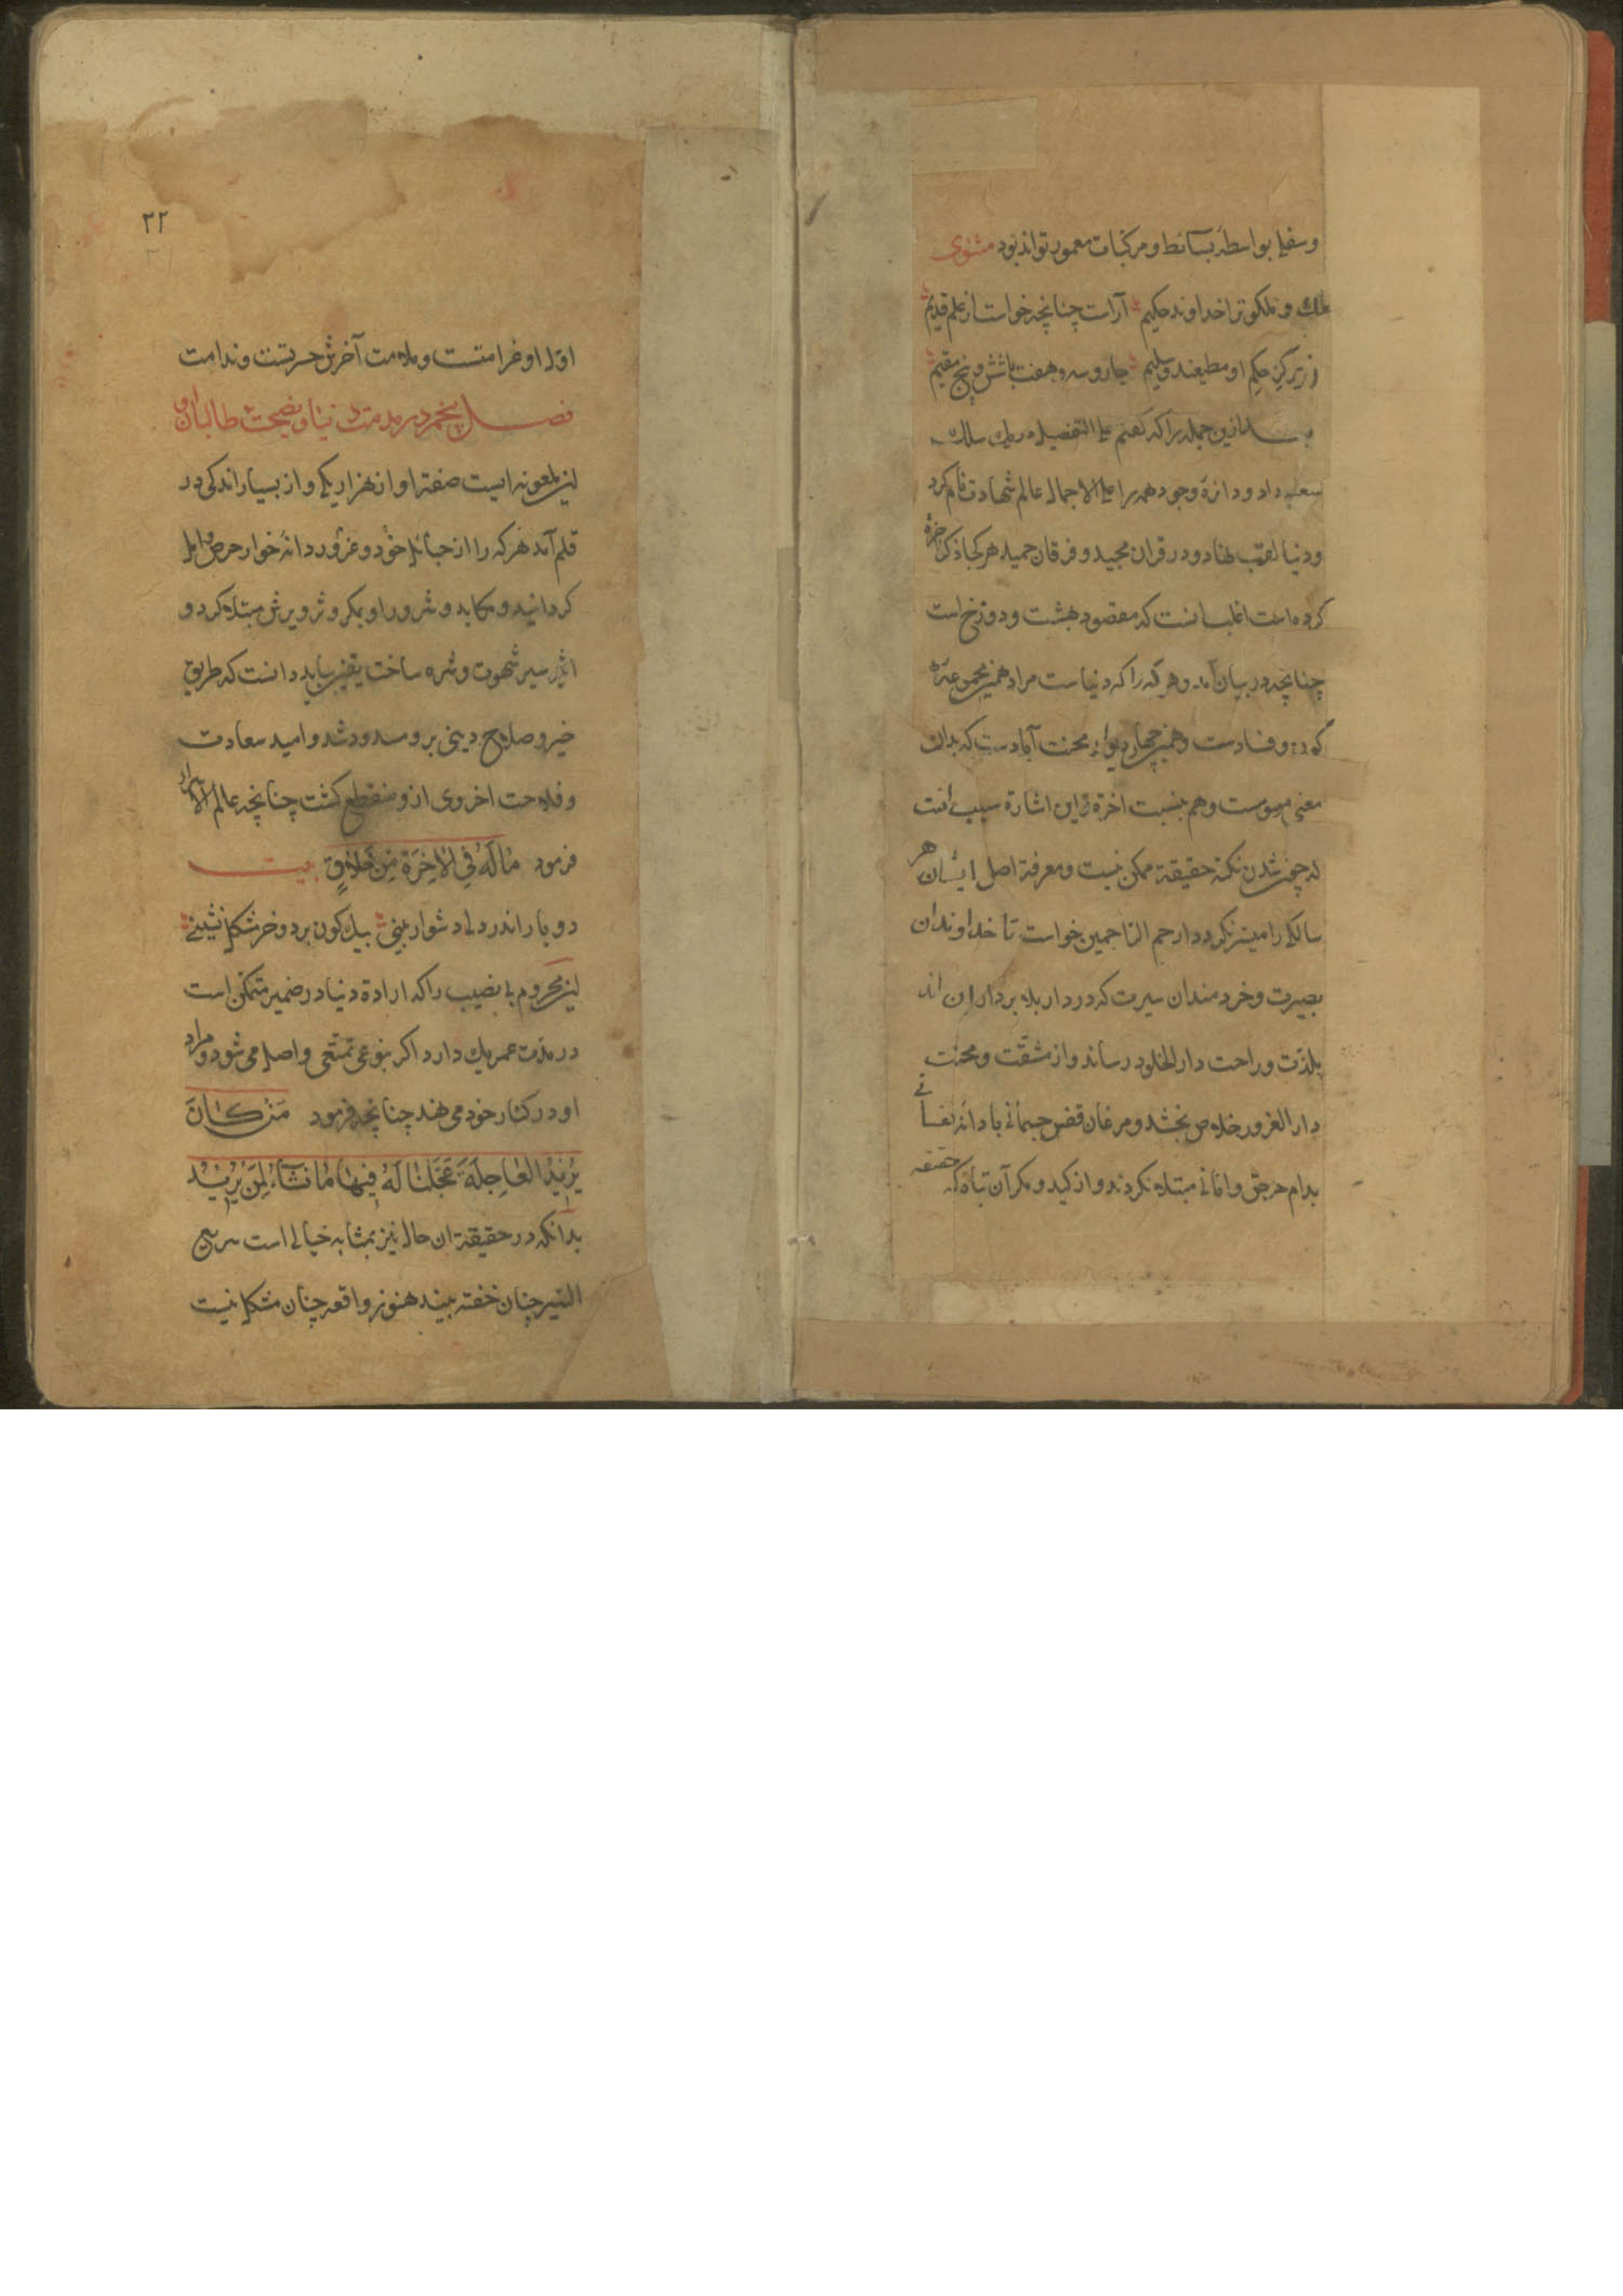 وسفلی بواسطهٔ بسائط و مرکبات معمور تواند بود مثنوی
ملک و ملکوترا خداوند حکیم آراست چنانچه خواست از علم قدیم
حکم او مطیعند و سلیم چار و سه و هفت باشش و پنج مقیم
ازین جمله را که گفتم علی التفصیل در یک سلک
داد و دائرهٔ وجود همه را علی الاجمال عالم شهادت نام کرد
و دنیا لقب نهاد و در قران مجید و فرقان حمید هر کجا ذکر آخرة
کرده است اغلب آنست که مقصود بهشت و دوزخ است
چنانچه در بیان آمد و هر که را که دنیاست مراد همین مجموعهٔ
و فسادست و همین چهار دیوار محنت آبادست که بدان
معنی موسوست و هم بنسبت اخرة این اشارة سبب آنست
که چون شدن نکتهٔ حقیقة ممکن نیست و معرفة اصل ایشان هر
سالکی را میسر نگردد ارحم الراحمین خواست تا خداوندان
بصیرت و خردمندان سیرت که در دار بلا بردار ان اند
بلذت و راحت دار الخلود رساند و از مشقت و محنت
دار الغرور خلاص بخشد و مرغان قفس جسمانی با دانهٔ نفسانی
بدام حرص و امانی مبتلا نکردند و از کید و مکر آن تباه که حقیقه
۲۲
اول او غرامتست و ملامت آخرش حسرتست و ندامت
فصل پنجم در مذمت دنیا و نصیحت طالبان او
این ملعونه ایست صفة او از هزار یکی و از بسیار اندکی در
قلم آمد هر که را از حبائل خود و غرور دانه خوار حرص و امل
کردانید و مکاید و شرور او بمکر و تزویرش مبتلا کرد و
اسیر شهوت و شره ساخت یقین بباید دانست که طریق
خیر و صلاح دینی برو مسدود شد و امید سعادت
و فلاحت اخروی ازو منقطع کشت چنانچه عالم الاسرار
فرمود مَا لَهُ فِي الْآخِرَةِ مِنْ خَلَاقٍ بیت
دو بار اندر دل دشوار بینی بیک کون بر دو خر مشکل نشینی
این محروم بی نصیب را که ارادة دنیا در ضمیر متمکن است
در مدت عمر یک دارد اگر بنوعی تمتعی واصل می شود و مراد
او در کنار خود می نهد چنانچه فرمود مَنْ كَانَ
يُرِيدُ الْعَاجِلَةَ عَجَّلْنَا لَهُ فِيهَا مَا نَشَاءُ لِمَنْ نُرِيدُ
بدانکه در حقیقة ان حال نیز بمثابه خیالی است سریع
السیر چنان خفته بیند هنوز واقعه چنان مشکل نیست